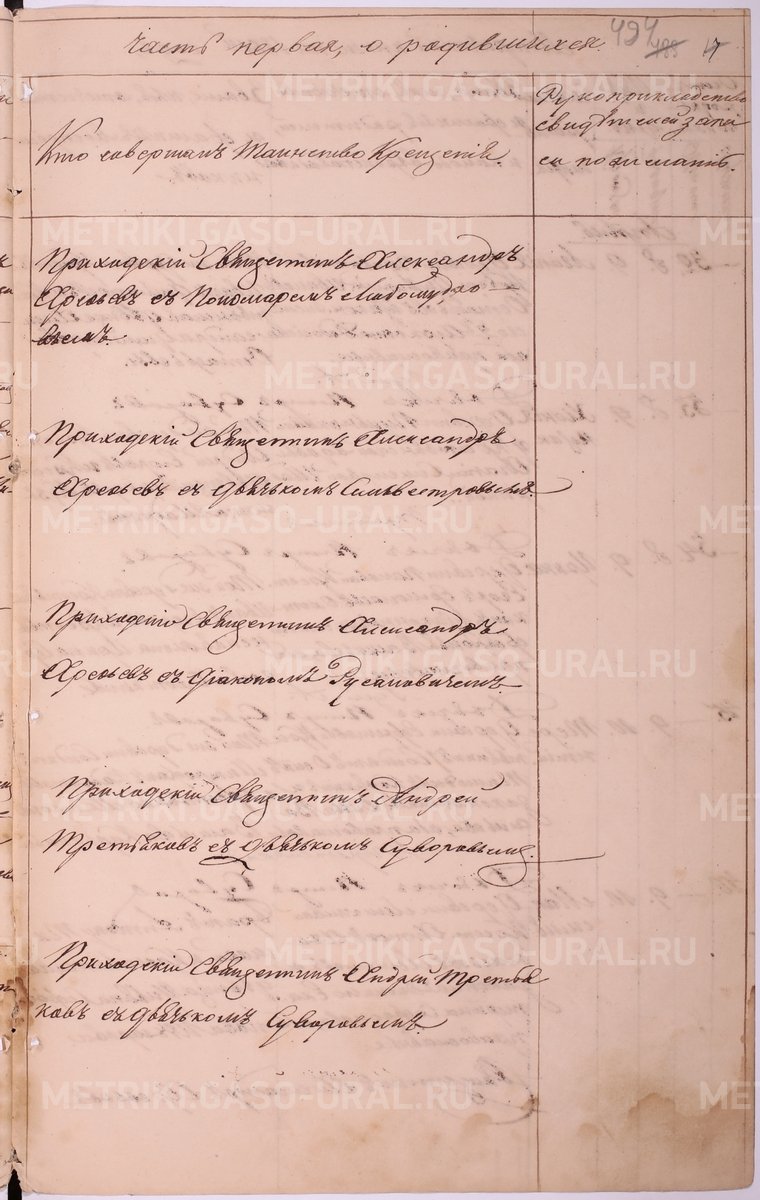 Часть первая, о родившихся.
494 483 17
Кто совершалъ Таинство Крещенiя.
Рукоприкладство
свидѣтелей запи
си по желанiю.
Приходскiй Священникъ Александръ
Арефьевъ съ Пономаремъ Любомудро-
вымъ.
Приходскiй Священникъ Александръ
Арефьевъ съ Дьячькомъ Сильвестровымъ.
Приходскiй Священникъ Александръ
Арефьевъ съ Дiакономъ Русановичемъ.
Приходскiй Священникъ Андрей
Третьяковъ съ Дьячькомъ Суворовымъ.
Приходскiй Священникъ Андрей Третья
ковъ съ Дьячькомъ Суворовымъ.
METRIKI.GASO-URAL.RU